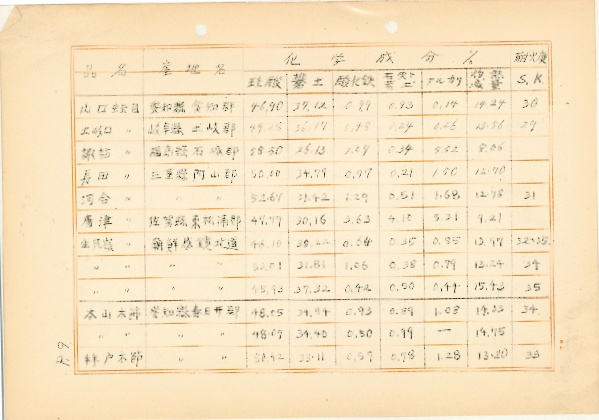 品名 産地名 化学成分% 耐火度
珪酸 礬土 酸化鉄 アルカリ 灼熱減量 S.K.
山口蛙目 愛知縣愛知郡 46.90 37.12 0.99 0.93 0.14 14.24 30
土岐口 〃 岐阜縣土岐郡 0.48 0.24 0.26 13.56 29
福島縣石城郡 58.50 26.13 1.29 0.34 5.52 8.06
長田 〃 三重縣阿山郡 50.20 34.79 0.97 0.21 1.50 12.70
河合 〃 〃 〃 52.67 31.42 1.20 0.51 1.68 12.78 31
唐津 〃 佐賀縣東松浦郡 47.77 30.16 3.63 4.10 5.21 9.21
生気嶺 〃 朝鮮咸鏡北道 46.10 38.22 0.64 0.35 0.85 13.97 32~35
〃 〃 〃 〃 53.01 31.81 1.06 0.38 0.79 13.24 34
〃 〃 〃 〃 45.93 37.32 0.42 0.50 0.44 15.43 35
本山木節 愛知縣春日井郡 48.05 34.94 0.93 0.89 1.08 14.23 34
〃 〃 〃 〃 48.09 34.40 0.50 0.99 — 14.75
〃 〃 50.42 33.11 0.57 0.78 1.28 13.20 33
P. 9